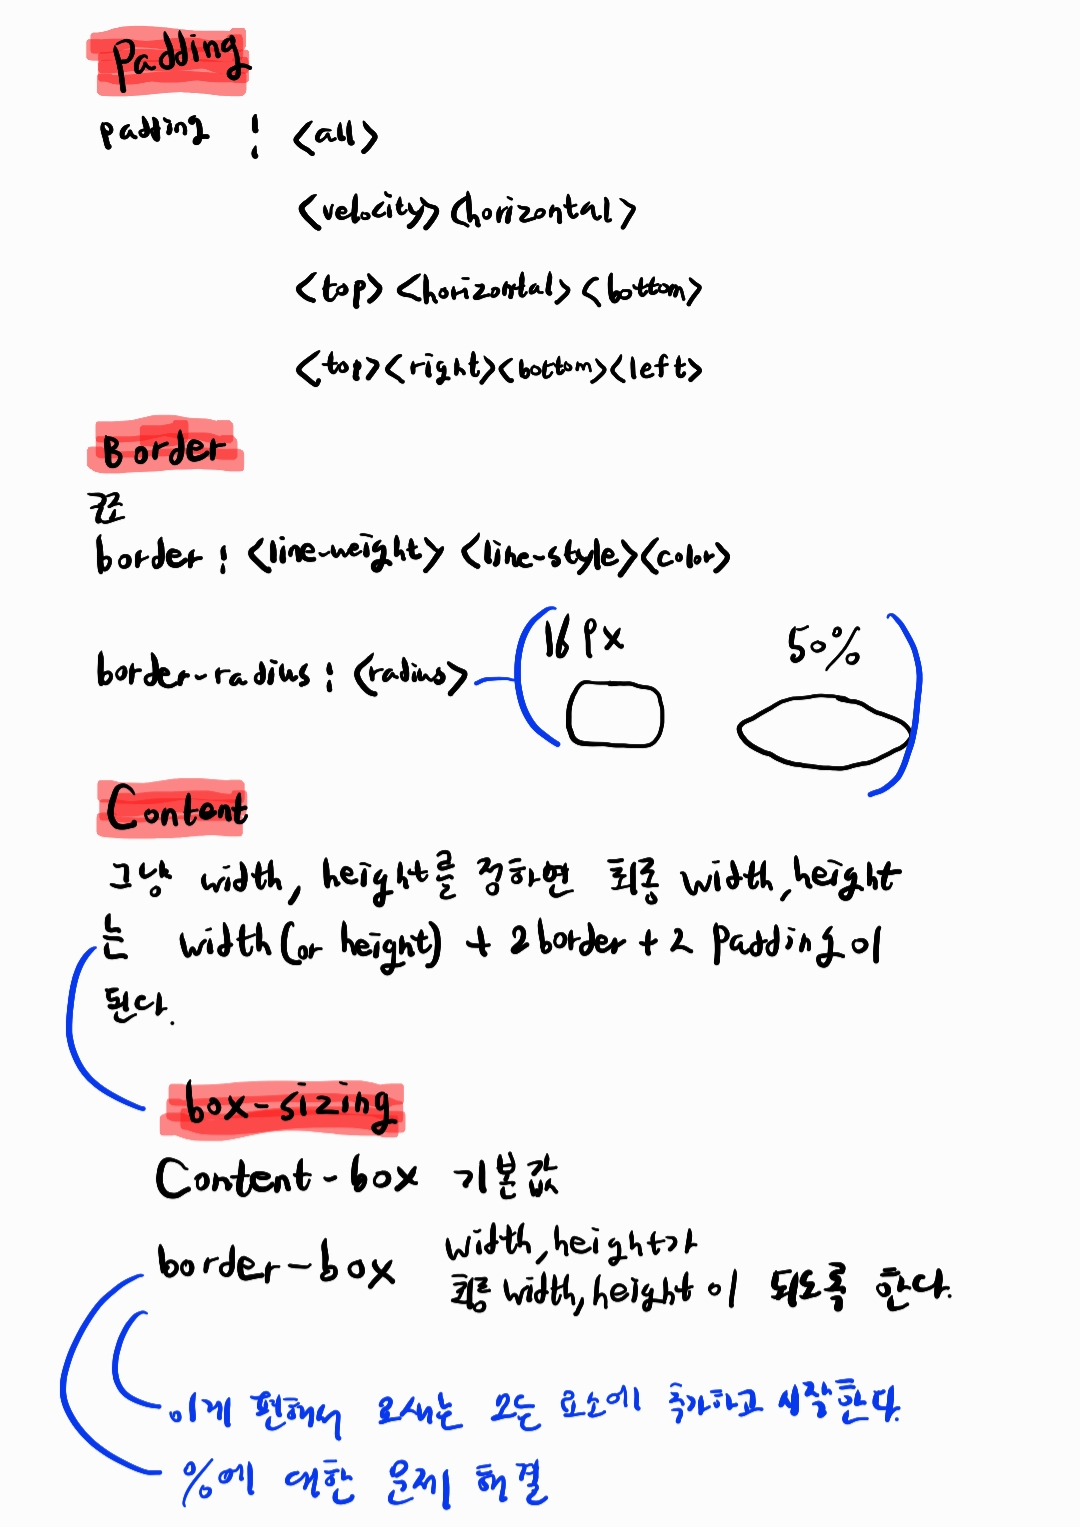 Padding
padding : <all>
<velocity> <horizontal>
<top> <horizontal> <bottom>
<top> <right> <bottom> <left>
Border
구조
border : <line-weight> <line-style> <color>
border-radius : <radius>
16px 50%
Content
그냥 width, height를 정하면 최종 width, height
는 width(or height) + 2border + 2 padding이
된다.
box-sizing
Content-box 기본값
border-box width, height가
최종 width, height이 되도록 한다.
이게 편해서 요새는 모든 요소에 추가하고 시작한다.
%에 대한 문제 해결